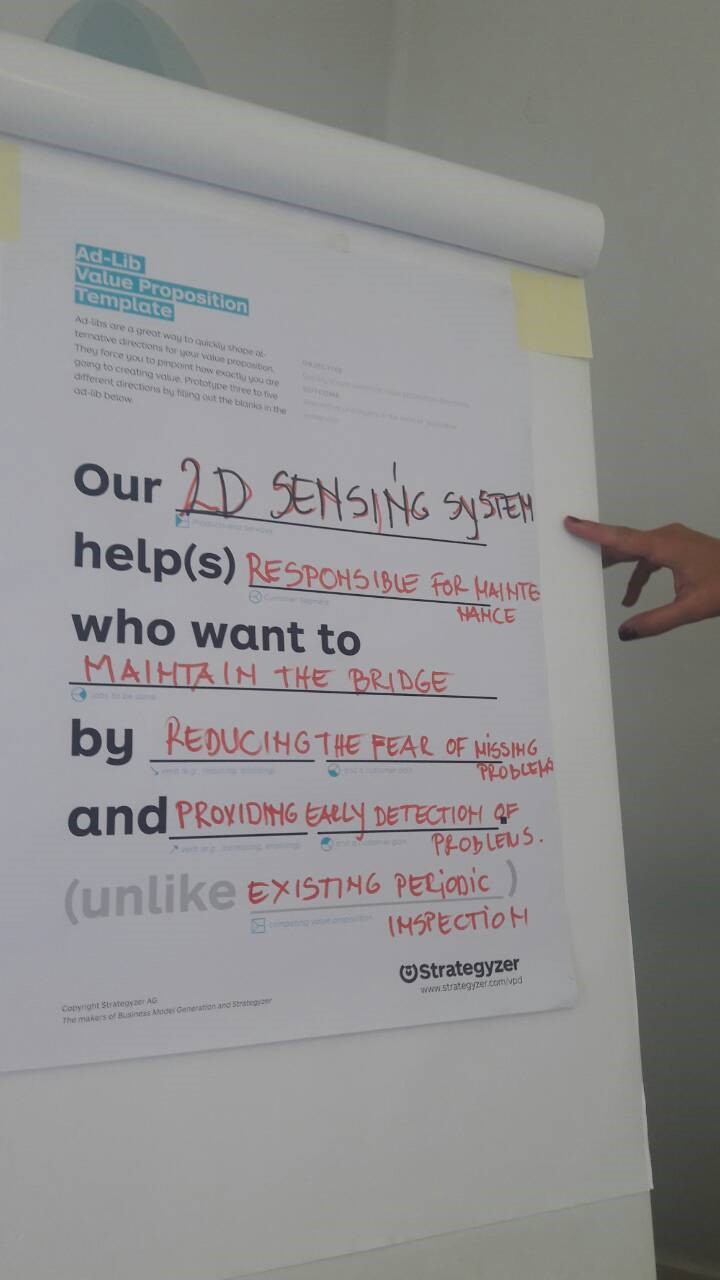 Ad-Lib
Value Proposition
Template
Ad-libs are a great way to quickly shape al-
ternative directions for your value proposition.
They force you to pinpoint how exactly you are
going to creating value. Prototype three to five
different directions by filling out the blanks in the
ad-lib below.
OBJECTIVE
OUTCOME
Our 2D SENSING SYSTEM
Products and Services
help(s) RESPONSIBLE FOR MAINTE
NANCE
Customer Segment
who want to
MAINTAIN THE BRIDGE
jobs to be done
by REDUCING THE FEAR OF MISSING
PROBLEMS
verb (e.g., reducing, avoiding) and a customer pain
and PROVIDING EARLY DETECTION OF
PROBLEMS.
verb (e.g., increasing, enabling) and a customer gain
(unlike EXISTING PERIODIC )
INSPECTION
competing value proposition
Strategyzer
www.strategyzer.com/vpd
Copyright Strategyzer AG
The makers of Business Model Generation and Strategyzer